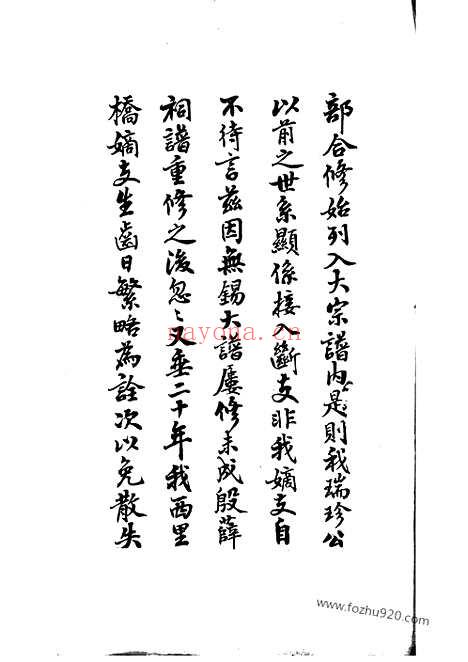 部合修始列入大宗譜內是則我瑞珍公
以前之世系顯係接入斷支非我嫡支自
不待言茲因無錫大譜屢修未成殷薛
祠譜重修之後忽忽又垂二十年我西里
橋嫡支生齒日繁略為詮次以免散失
nayona.cn
www.fozhu920.com